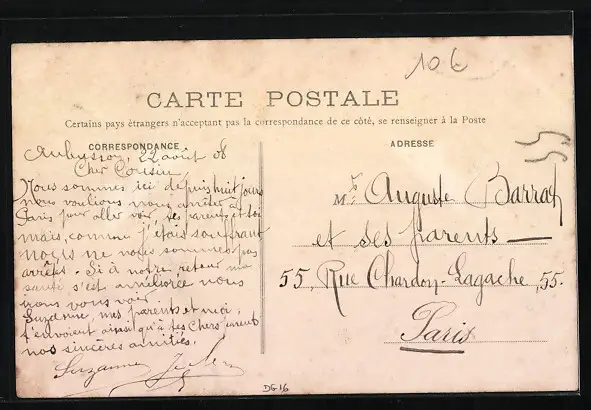 10 €
CARTE POSTALE
Certains pays étrangers n'acceptant pas la correspondance de ce côté, se renseigner à la Poste
CORRESPONDANCE
Aubusson, 22 août 08
Cher Cousin,
Nous sommes ici depuis huit jours
nous voulions nous arrêter à
Paris pour aller voir, tes parents et toi
mais, comme j'étais souffrant
nous ne nous sommes pas
arrêtés. Si à notre retour ma
santé s'est améliorée nous
irons vous voir
Suzanne, mes parents et moi,
t'envoient ainsi qu'à tes chers parents
nos sincères amitiés.
Suzanne
ADRESSE
Mr Auguste Barrat
et ses parents
55, Rue Chardon-Lagache, 55.
Paris
DG 16